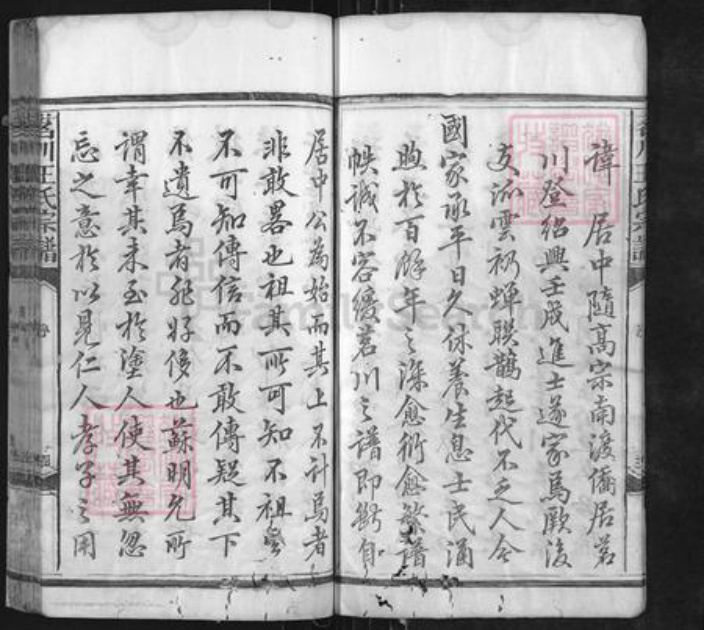 諱 居中隨高宗南渡僑居茗
川登紹興壬戌進士遂家焉厥後
支派雲礽蟬聯鵲起代不乏人今
國家承平日久休養生息士民涵
煦於百餘年之深愈衍愈繁譜
帙誠不容緩茗川之譜即斷自
居中公為始而其上不計焉者
非敢畧也祖其所可知不祖其
不可知傳信而不敢傳疑其下
不遺焉者非好侈也蘇明允所
謂幸其未至於塗人使其無忽
忘之意於以見仁人孝子之用
川王氏宗譜
FamilySearch